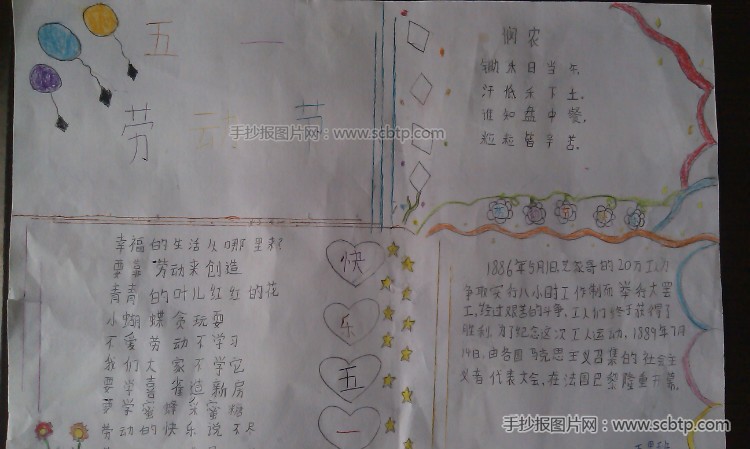 五 一
劳 动 节
手抄报图片网：www.scbtp.com
悯农
锄禾日当午
汗滴禾下土.
谁知盘中餐.
粒粒皆辛苦.
幸福的生活从哪里来
要靠劳动来创造
青青的叶儿红红的花
小蝴蝶贪玩耍
不爱劳动不学习
我们大家不学它
要学喜雀造新房
要学蜜蜂采蜜糖
劳动的快乐说不尽
快
乐
五
一
1886年5月1日芝加哥的20万工人为
争取实行八小时工作制而举行大罢
工,经过艰苦的斗争,工人们终于获得了
胜利.为了纪念这次工人运动,1889年7月
14日,由各国马克思主义召集的社会主
义者代表大会,在法国巴黎隆重开幕.
手抄报图片网：www.scbtp.com